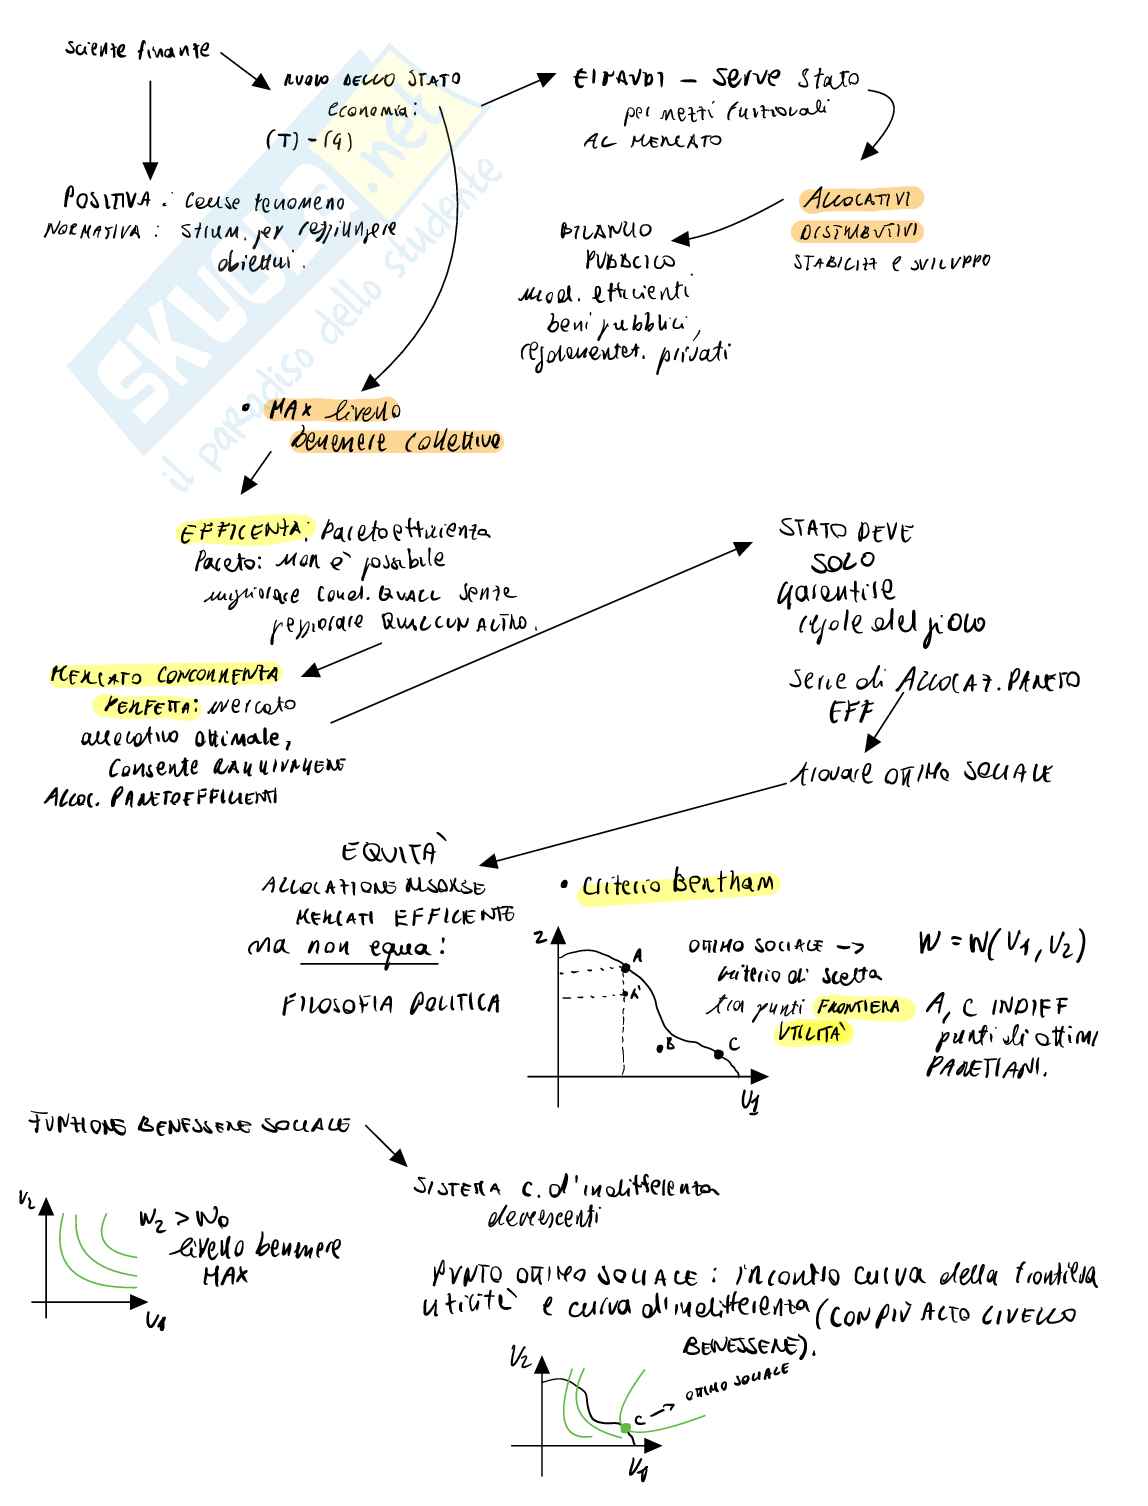 scienze finanze
RUOLO DELLO STATO
economia:
(T) - (G)
EINAUDI - SERVE Stato
per mezzi funzionali
AL MERCATO
POSITIVA: cause fenomeno
NORMATIVA: strum. per raggiungere
obiettivi.
ALLOCATIVI
DISTRIBUTIVI
STABILIZZ e SVILUPPO
BILANCIO
PUBBLICO
mod. efficienti
beni pubblici,
regolamentaz. privati
SKUOLA.net
il paradiso dello studente
• MAX livello
benessere collettivo
EFFICENZA: Paretoefficienza
Pareto: non è possibile
migliorare cond. QUALC senza
peggiorare QUALCUN ALTRO.
STATO DEVE
SOLO
garantire
regole del gioco
MERCATO CONCORRENZA
PERFETTA: mercato
allocativo ottimale,
consente RAGGIUNGERE
ALLOC. PARETOEFFICIENTI
Serie di ALLOCAZ. PARETO
EFF
trovare OTTIMO SOCIALE
EQUITÀ
ALLOCAZIONE RISORSE
MERCATI EFFICIENTE
ma non equa!
FILOSOFIA POLITICA
• Criterio Bentham
2
A
A'
B
C
U1
OTTIMO SOCIALE ->
criterio di scelta
tra punti FRONTIERA
UTILITÀ
W = W(U1, U2)
A, C INDIFF
punti di ottimi
PARETIANI.
FUNZIONE BENESSERE SOCIALE
SISTEMA C. d'indifferenza
decrescenti
U2
W2 > W0
livello benessere
MAX
U1
PUNTO OTTIMO SOCIALE: incontro curva della frontiera
utilità e curva d'indifferenza (CON PIÙ ALTO LIVELLO
BENESSERE).
U2
C -> OTTIMO SOCIALE
U1